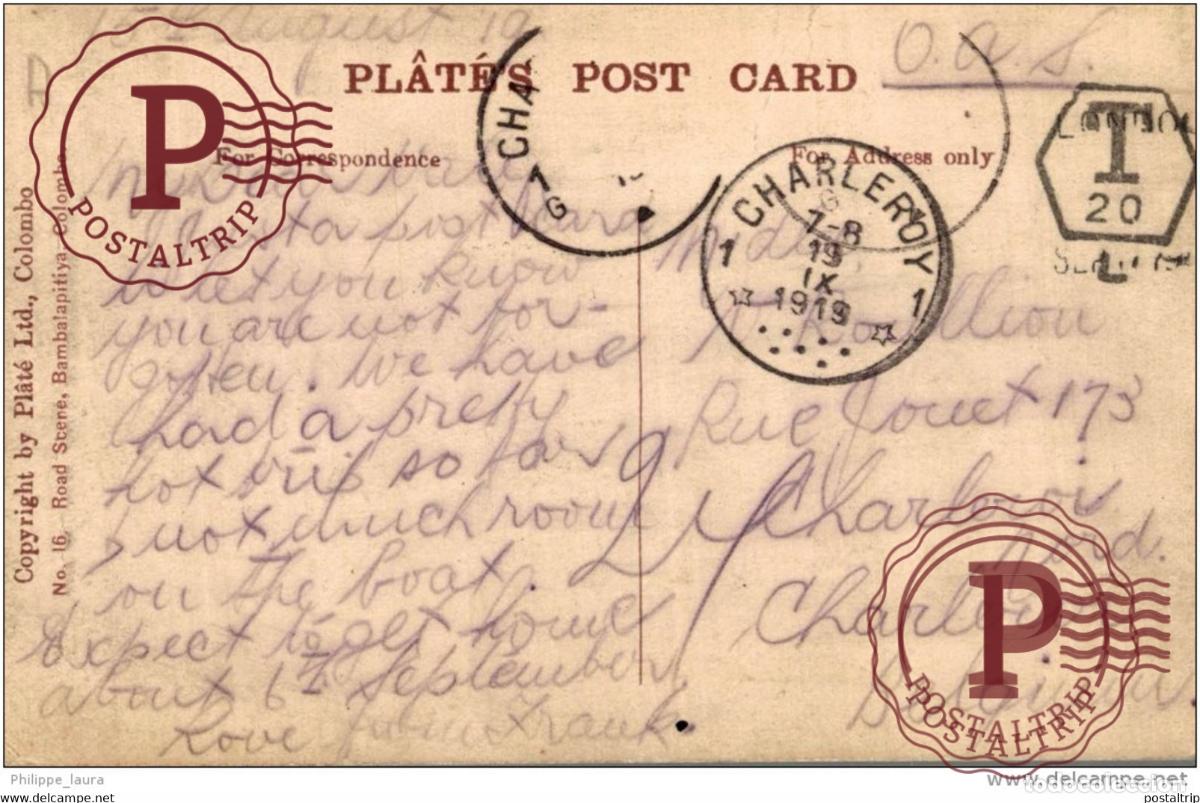 15th August 19
O.A.S.
PLÂTÉ'S POST CARD
For Correspondence
For Address only
My Dear
Just a post card
to let you know
you are not for-
gotten. We have
had a pretty
hot trip so far
& not much room
on the boat.
Expect to get home
about 6th September
Love from Frank
Rue Jouet 173
Charleroi
Nord.
CHA
1
G
1 CHARLEROY 1
G
7-8
19
IX
1919
LONDON
T
20
L
Copyright by Plâté Ltd., Colombo
No. 16. Road Scene, Bambalapitiya, Colombo
P
POSTALTRIP
P
POSTALTRIP
POSTALTRIP
Philippe_laura
www.delcampe.net
todocoleccion
www.delcampe.net
postaltrip